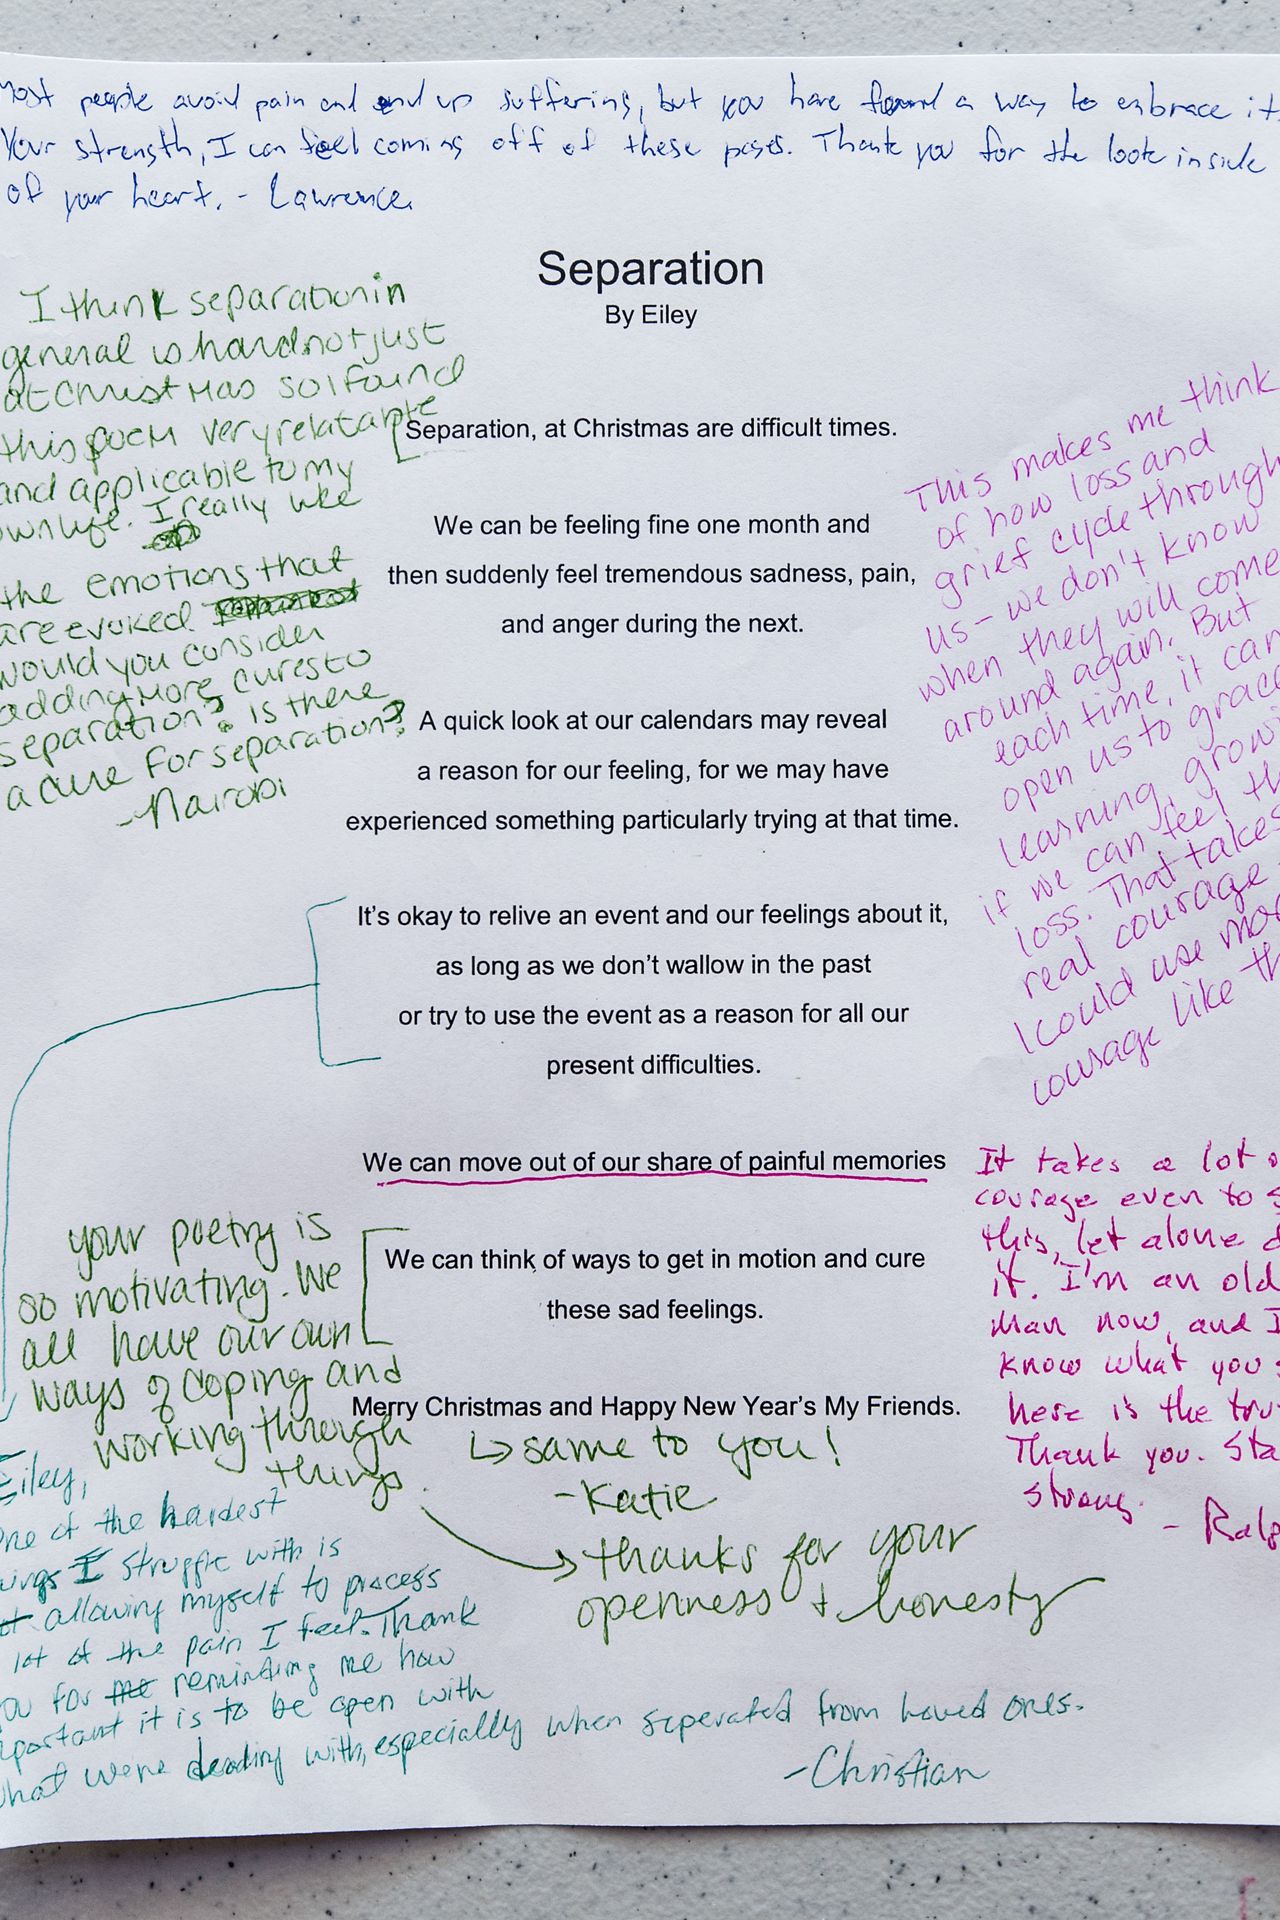 Most people avoid pain and end up suffering, but you have found a way to embrace it.
Your strength, I can feel coming off of these pages. Thank you for the look inside
of your heart. - Lawrence.
Separation
By Eiley
I think separation in
general is hard not just
at Christmas so I found
this poem very relatable
and applicable to my
own life. I really like
the emotions that
are evoked.
would you consider
adding more cures to
separation? Is there
a cure for separation?
- Nairobi
Separation, at Christmas are difficult times.
We can be feeling fine one month and
then suddenly feel tremendous sadness, pain,
and anger during the next.
A quick look at our calendars may reveal
a reason for our feeling, for we may have
experienced something particularly trying at that time.
It's okay to relive an event and our feelings about it,
as long as we don't wallow in the past
or try to use the event as a reason for all our
present difficulties.
We can move out of our share of painful memories
We can think of ways to get in motion and cure
these sad feelings.
Merry Christmas and Happy New Year's My Friends.
This makes me think
of how loss and
grief cycle through
us - we don't know
when they will come
around again. But
each time, it can
open us to grace
learning, growi
if we can feel th
loss. That takes
real courage
I could use mo
courage like th
It takes a lot o
courage even to s
this, let alone d
it. I'm an old
man now, and I
know what you s
here is the tru
Thank you. Sta
strong.
- Ralp
your poetry is
so motivating. We
all have our own
ways of coping and
working through
things.
↳ same to you!
- Katie
→ thanks for your
openness + honesty
Eiley,
One of the hardest
ings I struggle with is
allowing myself to process
lot of the pain I feel. Thank
ou for the reminding me how
portant it is to be open with
what were dealing with, especially when seperated from loved ones.
- Christian